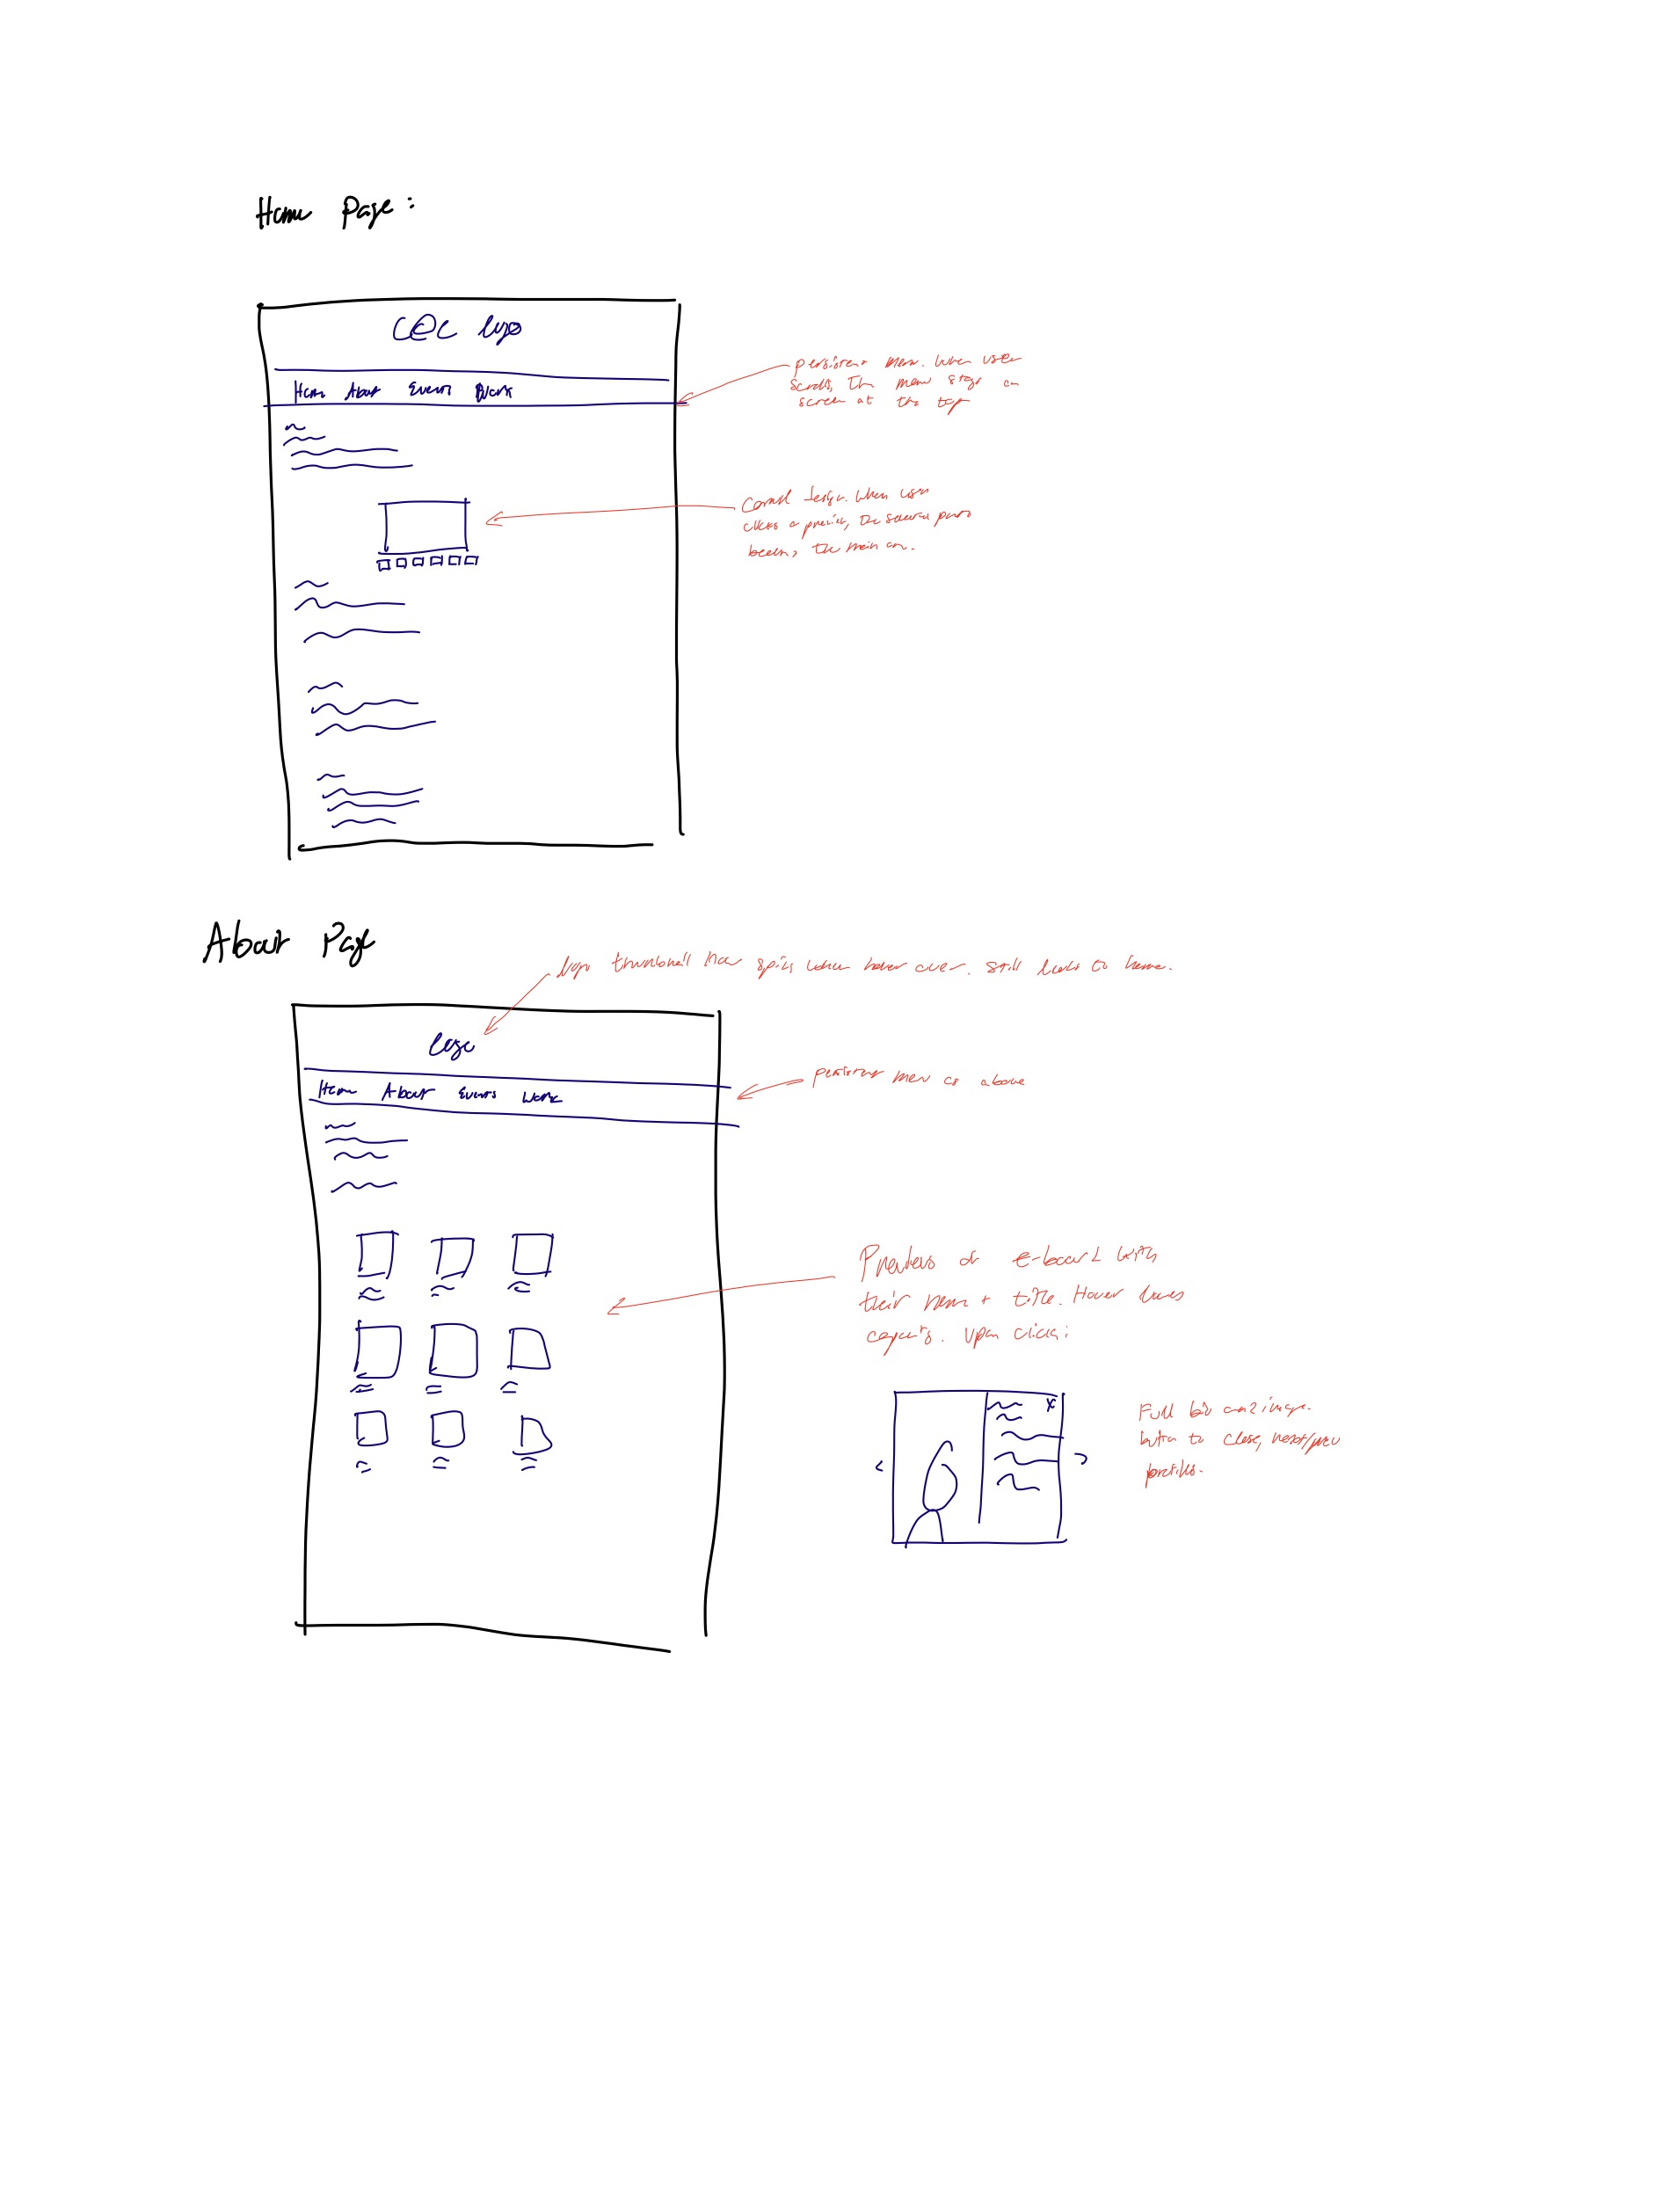 Home Page:
CEC logo
Home About Events Work
persistent menu. When user
scrolls, the menu stays on
screen at the top
design. When user
clicks a preview, the selected photo
becomes the main one.
About Page
logo thumbnail that spins when hover over. Still links to home.
logo
Home About Events Work
persistent menu as above
Previews of e-board with
their name + title. Hover
Upon click:
x
Full bio and image.
button to close, next/prev
profiles.
< >